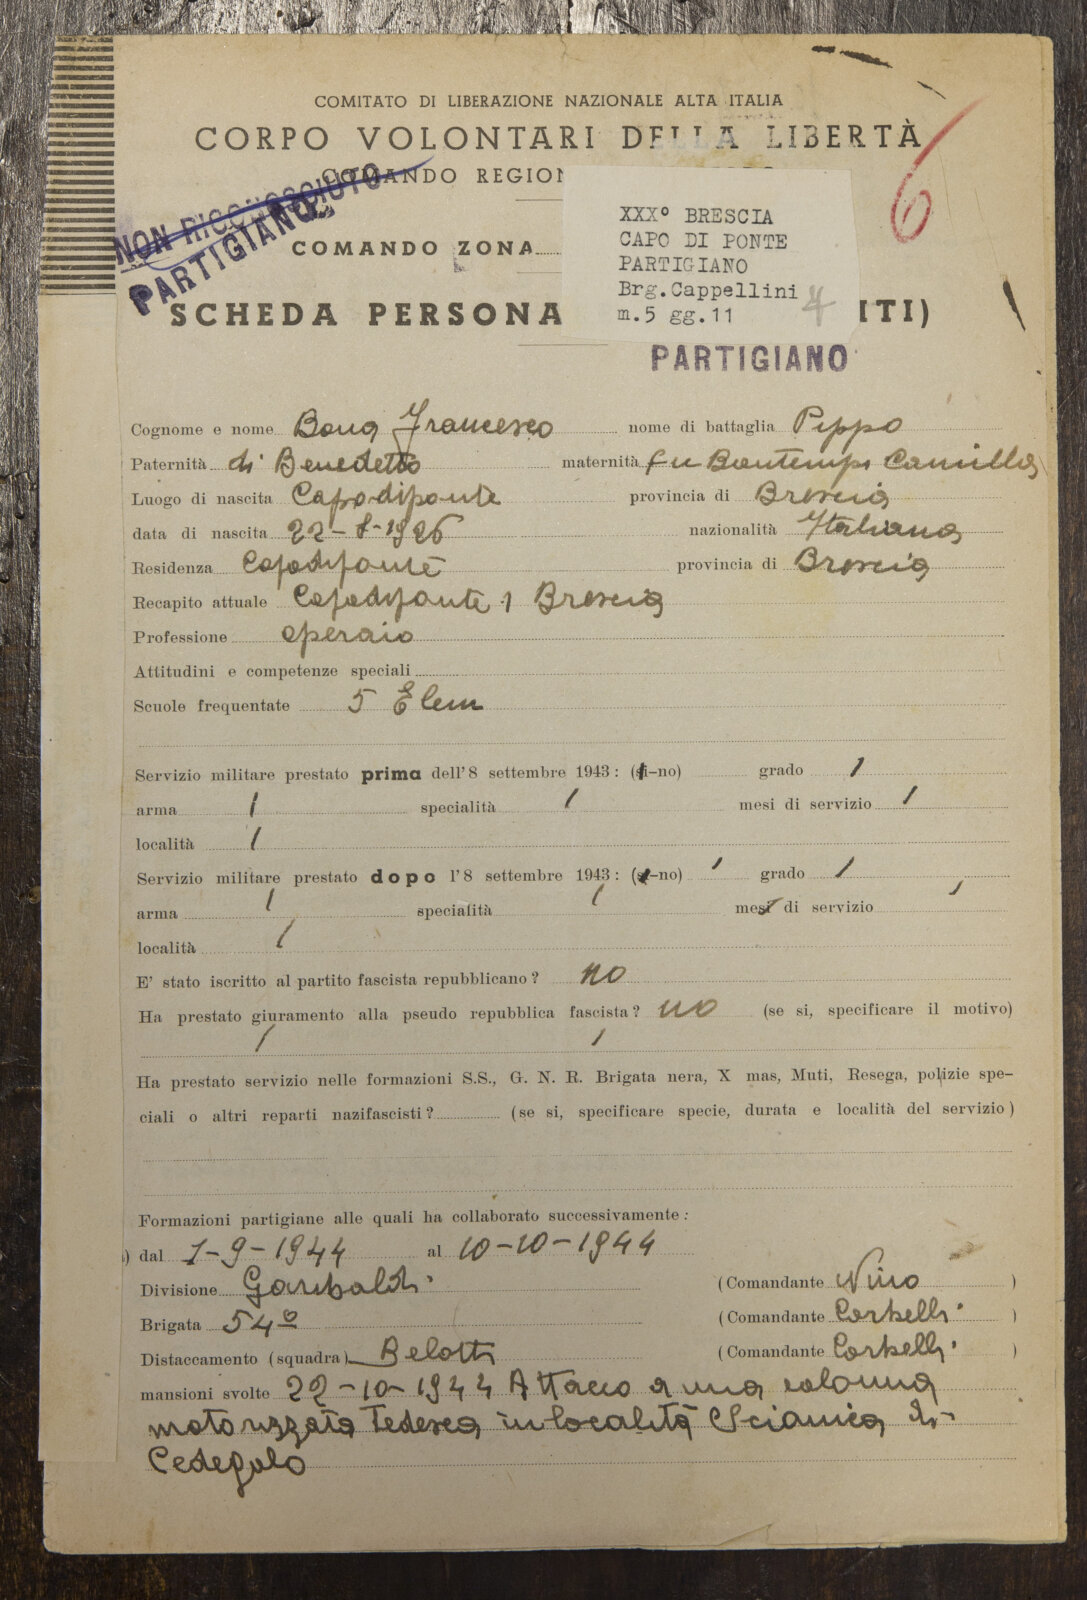 COMITATO DI LIBERAZIONE NAZIONALE ALTA ITALIA
CORPO VOLONTARI DELLA LIBERTÀ
COMANDO REGION
6
NON RICONOSCIUTO
PARTIGIANO
COMANDO ZONA
XXX° BRESCIA
CAPO DI PONTE
PARTIGIANO
Brg.Cappellini
m.5 gg.11
SCHEDA PERSONA ITI)
PARTIGIANO
Cognome e nome Bona Francesco nome di battaglia Pippo
Paternità di Benedetto maternità fu Bontempi Camilla
Luogo di nascita Capodiponte provincia di Brescia
data di nascita 22-8-1926 nazionalità Italiana
Residenza Capodiponte provincia di Brescia
Recapito attuale Capodiponte Brescia
Professione operaio
Attitudini e competenze speciali
Scuole frequentate 5 Elem
Servizio militare prestato prima dell'8 settembre 1943: (si-no) / grado /
arma / specialità / mesi di servizio /
località /
Servizio militare prestato dopo l'8 settembre 1943: (si-no) / grado /
arma / specialità / mesi di servizio /
località /
E' stato iscritto al partito fascista repubblicano? no
Ha prestato giuramento alla pseudo repubblica fascista? no (se si, specificare il motivo)
/ /
Ha prestato servizio nelle formazioni S.S., G. N. R. Brigata nera, X mas, Muti, Resega, polizie spe-
ciali o altri reparti nazifascisti? (se si, specificare specie, durata e località del servizio)
Formazioni partigiane alle quali ha collaborato successivamente:
) dal 1-9-1944 al 10-10-1944
Divisione Garibaldi (Comandante Nino )
Brigata 54° (Comandante Corbelli )
Distaccamento (squadra) Belotti (Comandante Corbelli )
mansioni svolte 22-10-1944 Attacco a una colonna
motorizzata Tedesca in località Scianica di
Cedegolo